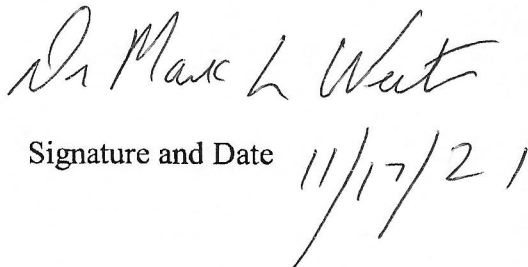 Dr Mark L
Signature and Date 11/17/21